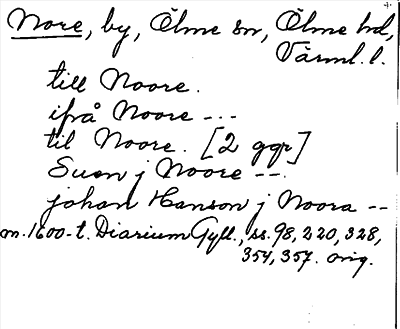 Nore, by, Ölme sn, Ölme hd,
Värml. l.
till Noore.
ifrå Noore ---
til Noore. [2 ggr]
Suen j Noore --
johan Hanson j Noora --
m. 1600-t. Diarium Gyll., ss. 98, 220, 328,
354, 357. orig.